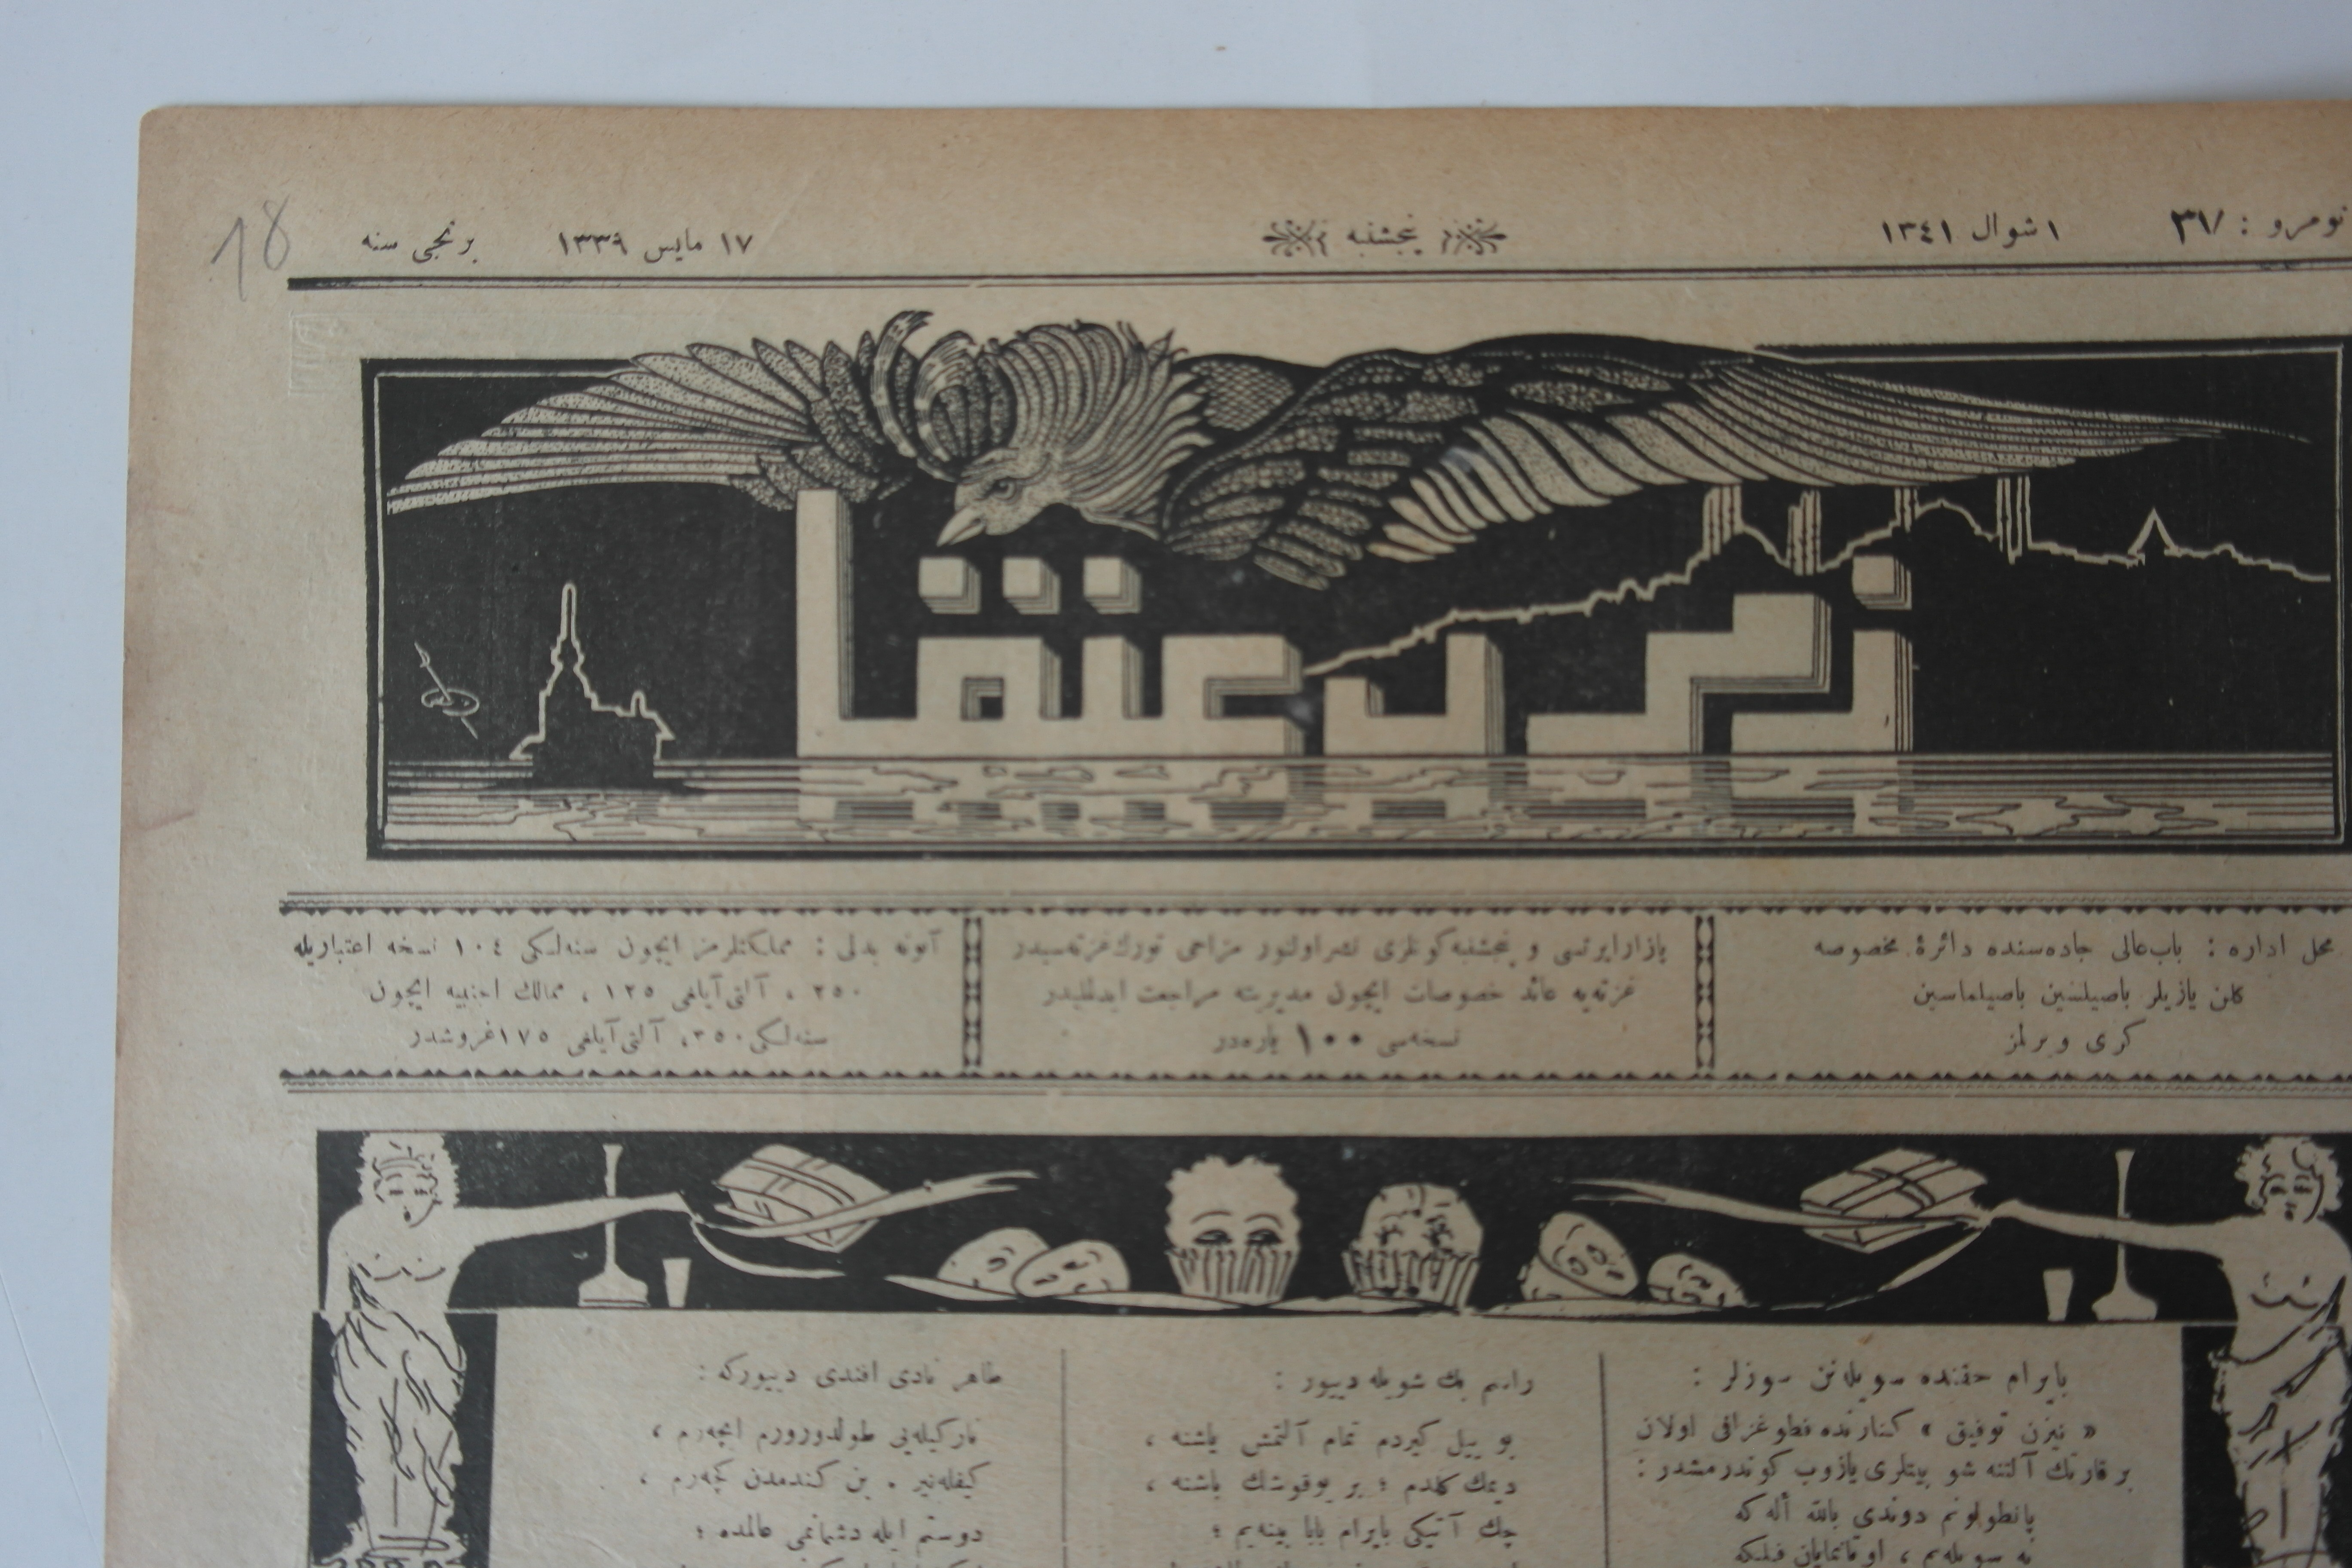 نومرو : ٣٧
١ شوال ١٣٤١
پنجشنبه
١٧ مايس ١٣٣٩
برنجی سنه
18
زمرد عنقا
محل اداره : باب‌عالی جاده‌سنده دائرهٔ مخصوصه
كلن يازيلر باصيلسين باصيلماسين
كری ويرلمز
پازارايرتسی و پنجشنبه كونلری نشر اولنور مزاحی تورك غزته‌سيدر
غزته‌يه عائد خصوصات ايچون مديريته مراجعت ايدلمليدر
نسخه‌سی ١٠٠ پاره‌در
آبونه بدلی : مملكتلرمز ايچون سنه‌لكی ١٠٤ نسخه اعتباريله
٢٥٠ ، آلتی‌آيلغی ١٢٥ ، ممالك اجنبيه ايچون
سنه‌لكی ٣٥٠، آلتی‌آيلغی ١٧٥ غروشدر
بايرام حقنده سويله‌نن سوزلر :
« نيزن توفيق » كنارنده فطوغرافی اولان
بر قارتك آلتنه شو بيتلری يازوب كوندرمشدر :
پانطولونم دوندی بالله أله كه
نه سويله‌يم ، اوتانمايان فلكه
راسم بك شويله دييور :
بو ييل كيردم تمام آلتمش ياشنه ،
ديمك كلدم ؛ بر يوقوشك باشنه ،
چك آتيكی بايرام بابا بينه‌يم ؛
طاهر نادی افندی دييوركه :
ناركيله‌يی طولدورورم ايچه‌رم ،
كيفله‌نير . بن كندمدن كچه‌رم ،
دوستم ايله دشمانمی عالمده ؛